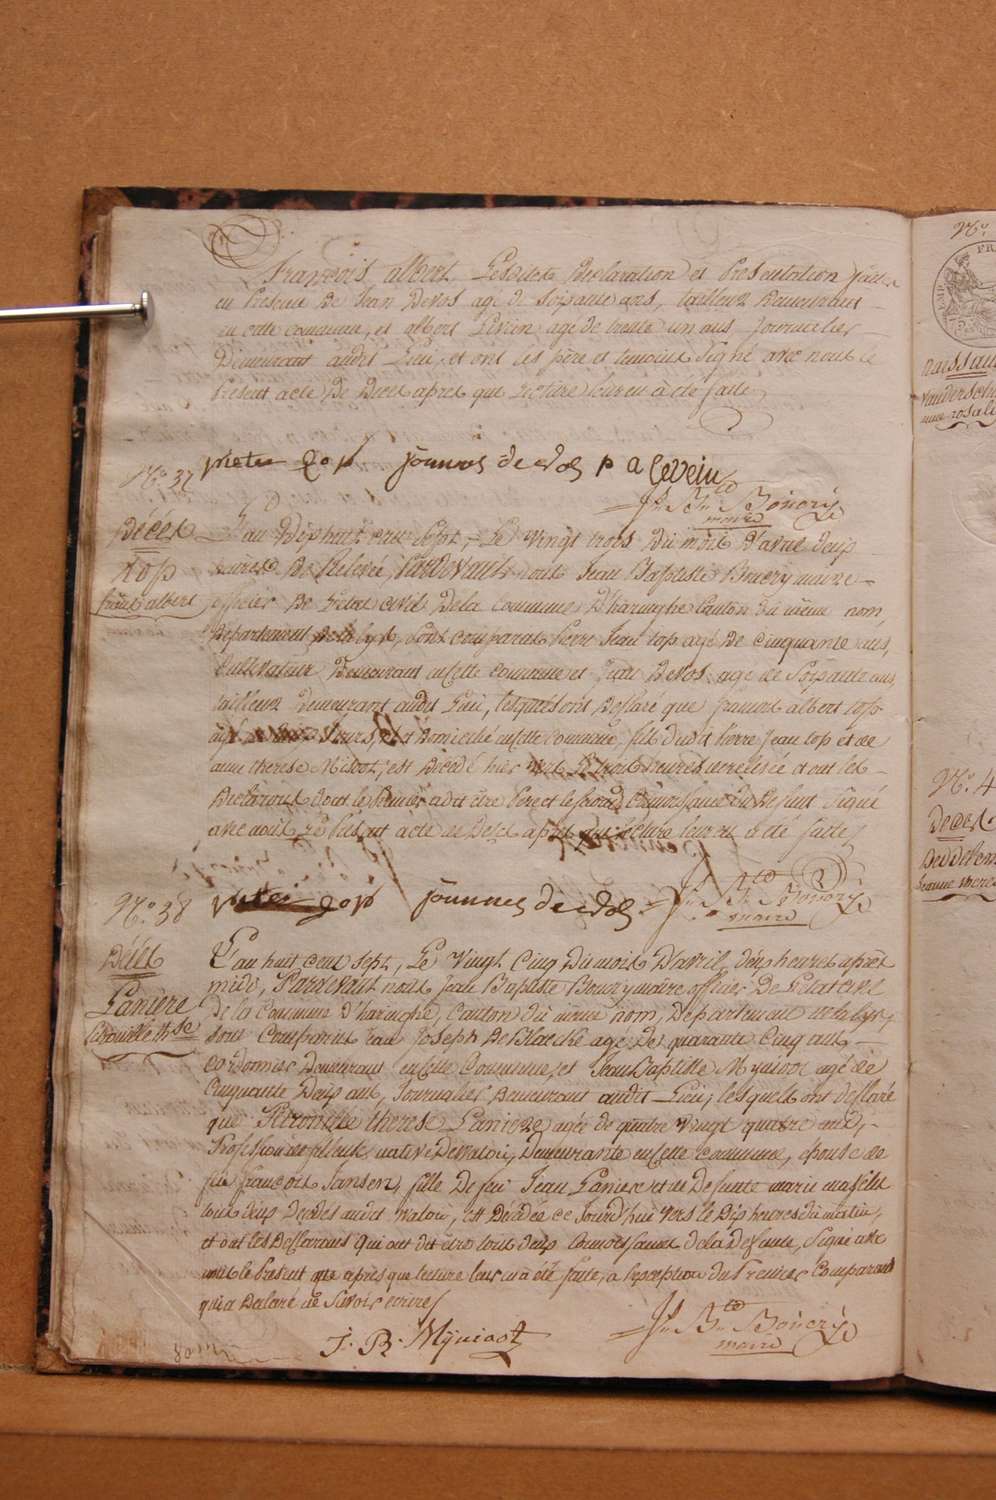 François albert Lesdites Declaration et Presentation faite
en Presence De Jean Devos agé de Soixante ans, tailleur Demeurant
en cette commune, et albert Levein agé de trente un ans Journalier
Demeurant audit Lieu, et ont les père et temoins Signé avec nous le
Présent acte De apres que Lecture leur en à eté faite
pieter Jop joannes de vos p a Levein
Jn Bte Bouery
maire
No. 37
Décès
top
franç albert
L'an Dixhuit cent Sept, Le Vingt trois Du mois D'avril Deux
heures De Relevée, Pardevant nous Jean Baptiste Bouery maire
officier De L'etat civil De la Commune D'haringhe Canton du même nom,
Département de la Lys, Sont comparus Pierre Jean top agé De cinquante ans,
Cultivateur Demeurant en cette commune et Jean Devos agé de Soixante ans
tailleur demeurant audit Lieu, lesquels ont Declaré que françois albert top
agé Jours, et Domicilié en cette commune, fils dudit Pierre Jean top et de
anne therese est Décédé hier heures de relevée et ont les
Declarans dont le Premier a dit être Pere et le second Connoissance du Defunt Signé
avec nous Le Présent acte de Décès après que Lecture leur en à eté faite
No. 38
pieter Jop joannes de vos Jn Bte Bouery
maire
Décès
Laniere
petronille Thse
L'an huit cent sept, Le Vingt Cinq Du mois D'avril, deux heures après
midi, Pardevant nous Jean Baptiste Bouery maire officier De L'etat civil
de la Commune d'haringhe, Canton du même nom, Département de la Lys,
Sont Comparus Jean Joseph De agé De quarante Cinq ans
cordonnier Demeurant en cette Commune, et Jean Baptiste Myncoot agé de
Cinquante Deux ans, Journalier Demeurant audit Lieu; lesquels ont declaré
que Petronille therese Laniere agée de quatre vingt quatre ans,
Profession de fileuse native De watou, Demeurante en cette commune, épouse de
feu françois Jansen, fille De feu Jean Laniere et de Defunte marie
tous deux Decedés audit watou, est Décédée ce Jourd'hui vers le Dix heures du matin,
et ont les Declarans qui ont dit être tous deux Connoissances de la Defunte, Signé avec
nous le Présent acte après que lecture leur en à été faite, à l'exception du Premier Comparant
qui a Declaré ne Savoir écrire
J. B. Myncoot
Jn Bte Bouery
maire
No.
naissance
vanderschu
anne rosali
No. 4
Deces
Beddelem
jeanne there